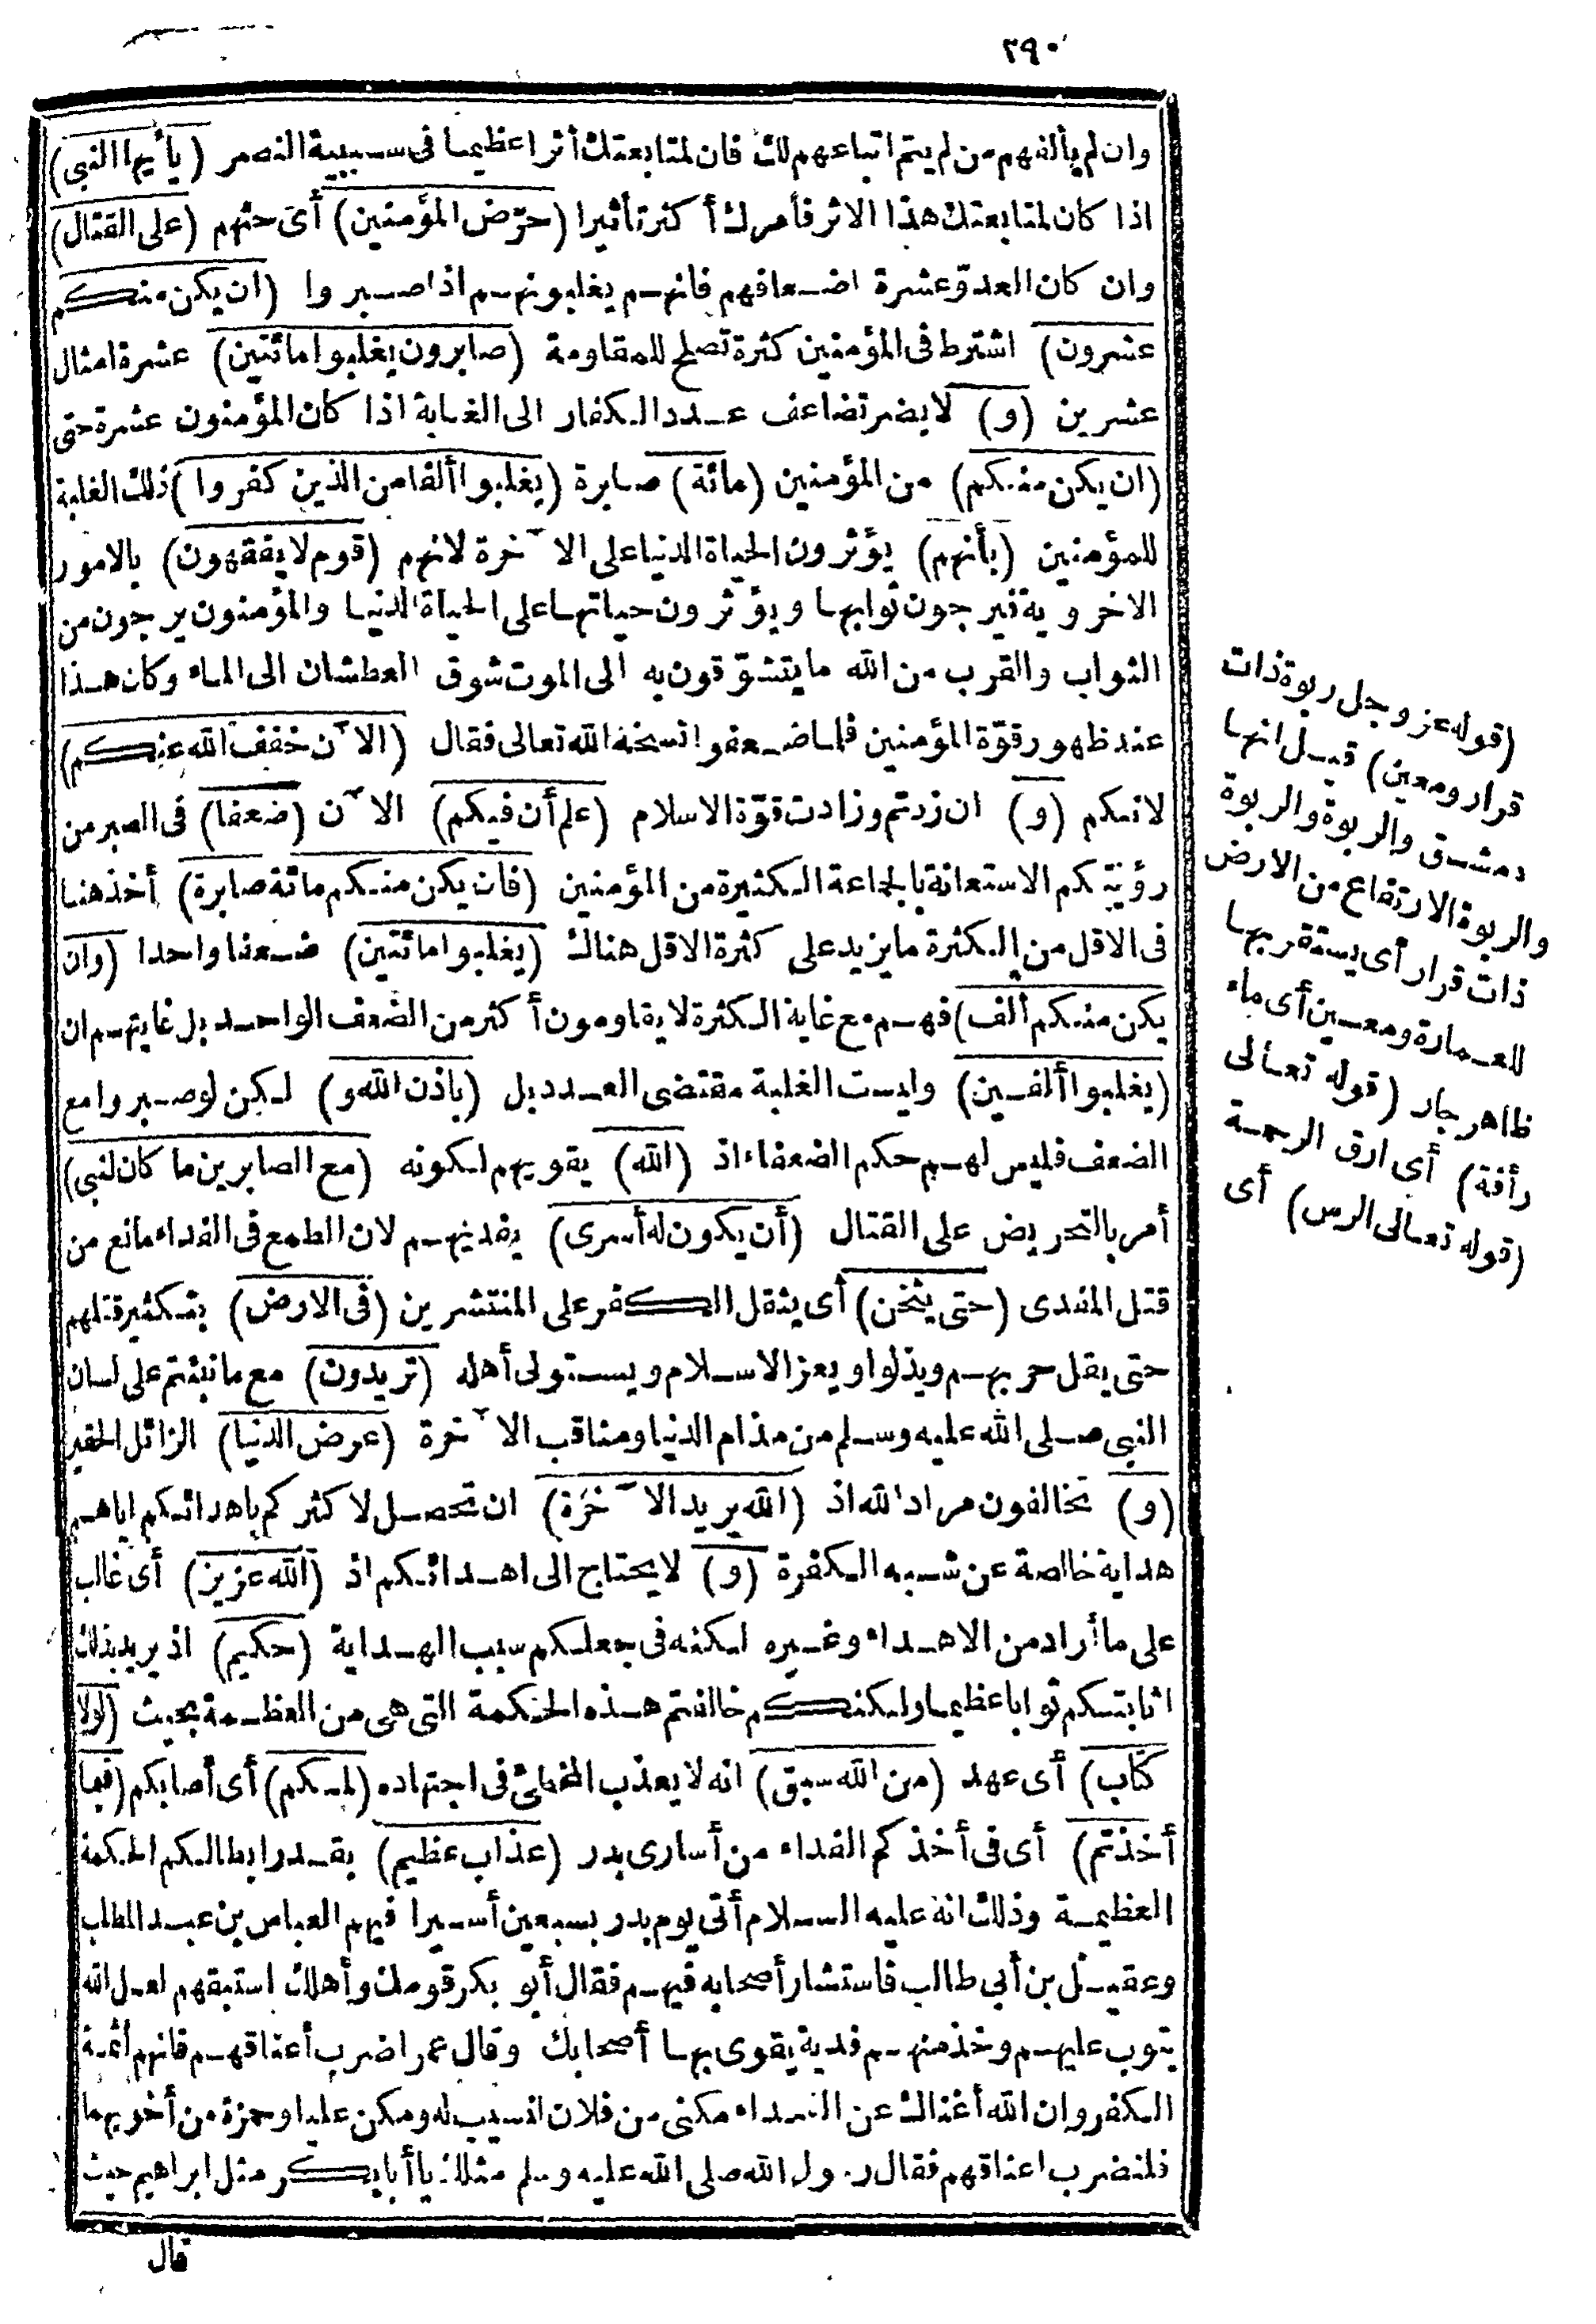 ٢٩٠
وان لم يألفهم من لم يتم اتباعهم لك فان لمتابعتك أثرا عظيما فى سببية النصر (يأيها النبى)
اذا كان لمتابعتك هذا الاثر فأمرك أكثر تأثيرا (حرّض المؤمنين) أى حثهم (على القتال)
وان كان العدوّ عشرة اضعافهم فانهم يغلبونهم اذا صبروا (ان يكن منكم
عشرون) اشترط فى المؤمنين كثرة تصلح للمقاومة (صابرون يغلبوا مائتين) عشرة امثال
عشرين (و) لا يضر تضاعف عدد الكفار الى الغاية اذا كان المؤمنون عشرة حتى
(ان يكن منكم) من المؤمنين (مائة) صابرة (يغلبوا ألفا من الذين كفروا) ذلك الغلبة
للمؤمنين (بأنهم) يؤثرون الحياة الدنيا على الآخرة لانهم (قوم لا يفقهون) بالامور
الاخروية فيرجون ثوابها ويؤثرون حياتها على الحياة الدنيا والمؤمنون يرجون من
الثواب والقرب من الله ما يتشوّقون به الى الموت شوق العطشان الى الماء وكان هذا
عند ظهور قوّة المؤمنين فلما ضعفوا نسخه الله تعالى فقال (الآن خفف الله عنكم)
لانكم (و) ان زدتم وزادت قوّة الاسلام (علم أن فيكم) الآن (ضعفا) فى الصبر من
رؤيتكم الاستعانة بالجماعة الكثيرة من المؤمنين (فان يكن منكم مائة صابرة) أخذ هنا
فى الاقل من الكثرة ما يزيد على كثرة الاقل هناك (يغلبوا مائتين) ضعفا واحدا (وان
يكن منكم ألف) فهم مع غاية الكثرة لا يقاومون أكثر من الضعف الواحد بل غايتهم ان
(يغلبوا ألفين) وليست الغلبة مقتضى العدد بل (باذن الله و) لكن لو صبروا مع
الضعف فليس لهم حكم الضعفاء اذ (الله) يقويهم لكونه (مع الصابرين ما كان لنبى)
أمر بالتحريض على القتال (أن يكون له أسرى) يفديهم لان الطمع فى الفداء مانع من
قتل المفدى (حتى يثخن) أى يثقل الكفر على المنتشرين (فى الارض) بتكثير قتلهم
حتى يقل حربهم ويذلوا ويعز الاسلام ويستولى أهله (تريدون) مع ما نبئتم على لسان
النبى صلى الله عليه وسلم من مذام الدنيا ومناقب الآخرة (عرض الدنيا) الزائل الحقير
(و) تخالفون مراد الله اذ (الله يريد الآخرة) ان تحصل لاكثركم باهدائكم اياهم
هداية خالصة عن شبه الكفرة (و) لا يحتاج الى اهدائكم اذ (الله عزيز) أى غالب
على ما أراد من الاهداء وغيره لكنه فى جعلكم سبب الهداية (حكيم) اذ يريد بذلك
اثابتكم ثوابا عظيما ولكنكم خالفتم هذه الحكمة التى هى من العظمة بحيث (لولا
كتاب) أى عهد (من الله سبق) انه لا يعذب المخطئ فى اجتهاده (لمسكم) أى أصابكم (فيما
أخذتم) أى فى أخذكم الفداء من أسارى بدر (عذاب عظيم) بقدر ابطالكم الحكمة
العظيمة وذلك انه عليه السلام أتى يوم بدر بسبعين أسيرا فيهم العباس بن عبد المطلب
وعقيل بن أبى طالب فاستشار أصحابه فيهم فقال أبو بكر قومك وأهلك استبقهم لعل الله
يتوب عليهم وخذ منهم فدية يقوى بها أصحابك وقال عمر اضرب أعناقهم فانهم أئمة
الكفر وان الله أغناك عن الفداء مكنى من فلان لنسيب له ومكن عليا وحمزة من أخويهما
فلنضرب اعناقهم فقال رسول الله صلى الله عليه وسلم مثلك يا أبا بكر مثل ابراهيم حيث
قال
(قوله عز وجل ربوة ذات
قرار ومعين) قيل انها
دمشق والربوة والربوة
والربوة الارتفاع من الارض
ذات قرار أى يستقر بها
للعمارة ومعين أى ماء
ظاهر جار (قوله تعالى
رأفة) أى ارق الرحمة
(قوله تعالى الرس) أى